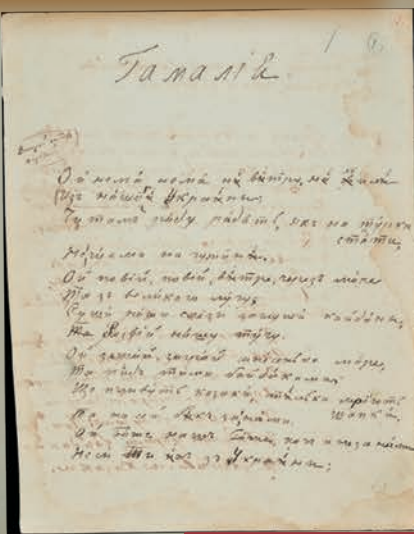 Гамалія
Ой нема нема нѣ вѣтру, нѣ хвилѣ
Изъ нашои Украины
Чи тамъ раду радять, якъ на турка
стати,
Нечуемо на чужинѣ.
Ой повій, повій, вѣтре, черезъ море
Та зъ великого лугу,
Суши наши слёзи заглуши кайданы,
Та розвій нашу тугу.
Ой заграй, заграй синесеньке море,
Та пидъ тими байдаками,
Що пливуть козаки, тилько мріють
шапки,
Та на сей бикъ за нами.
Ой, Боже нашъ Боже, хочь и не за нами
Неси Ти ихъ зъ Украины;